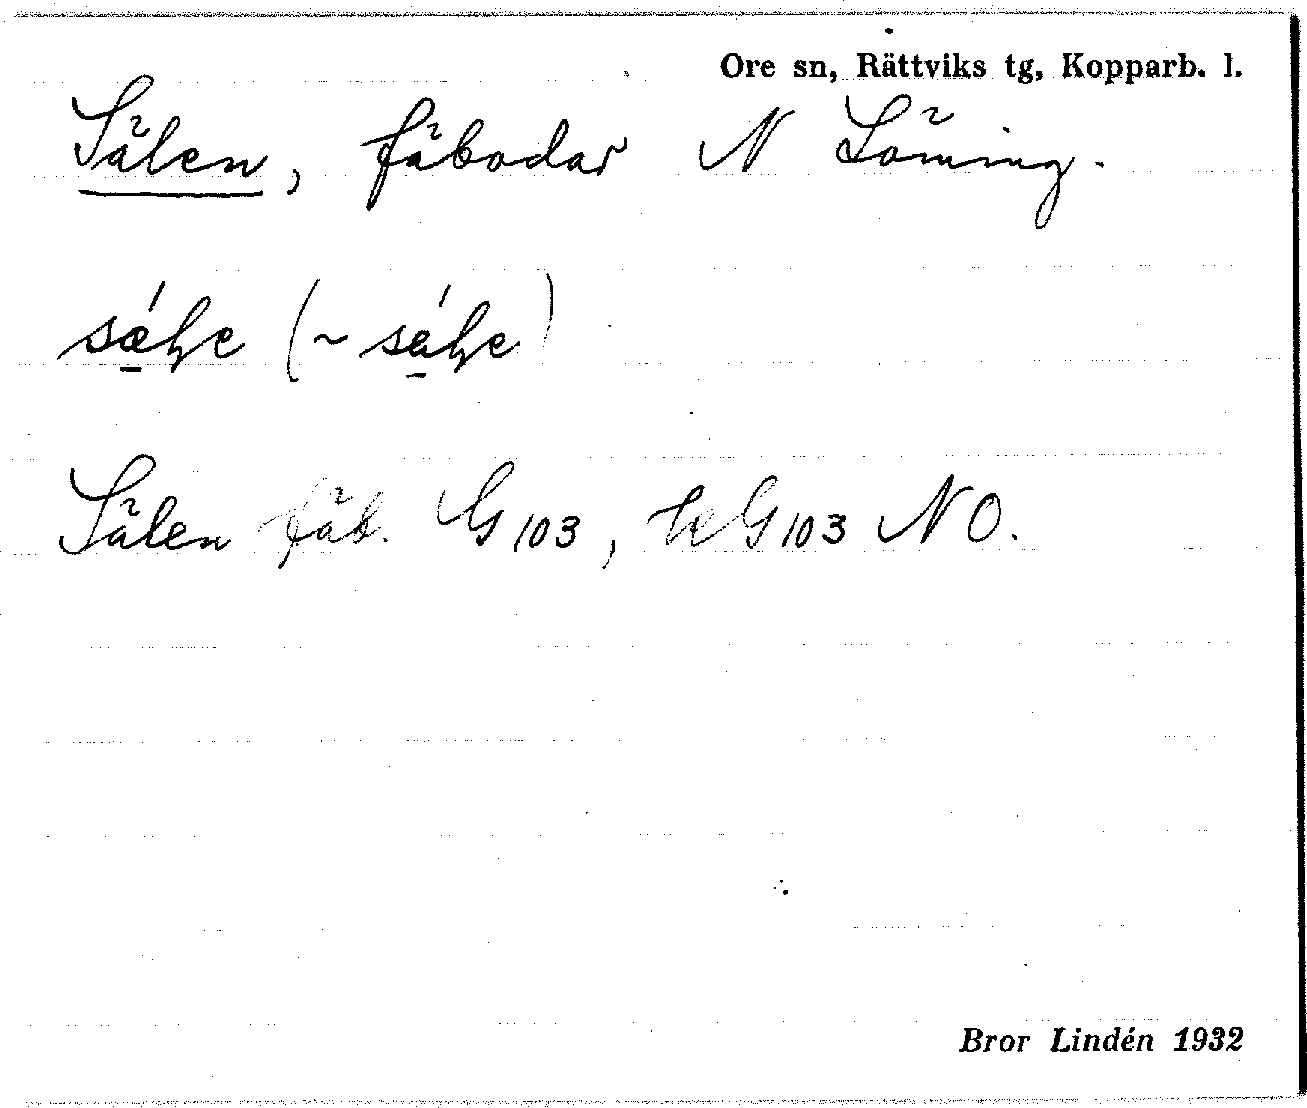 Ore sn, Rättviks tg, Kopparb. l.
Sälen, fäbodar N Löning.
Sälen fäb. G 103, G 103 NO.
Bror Lindén 1932